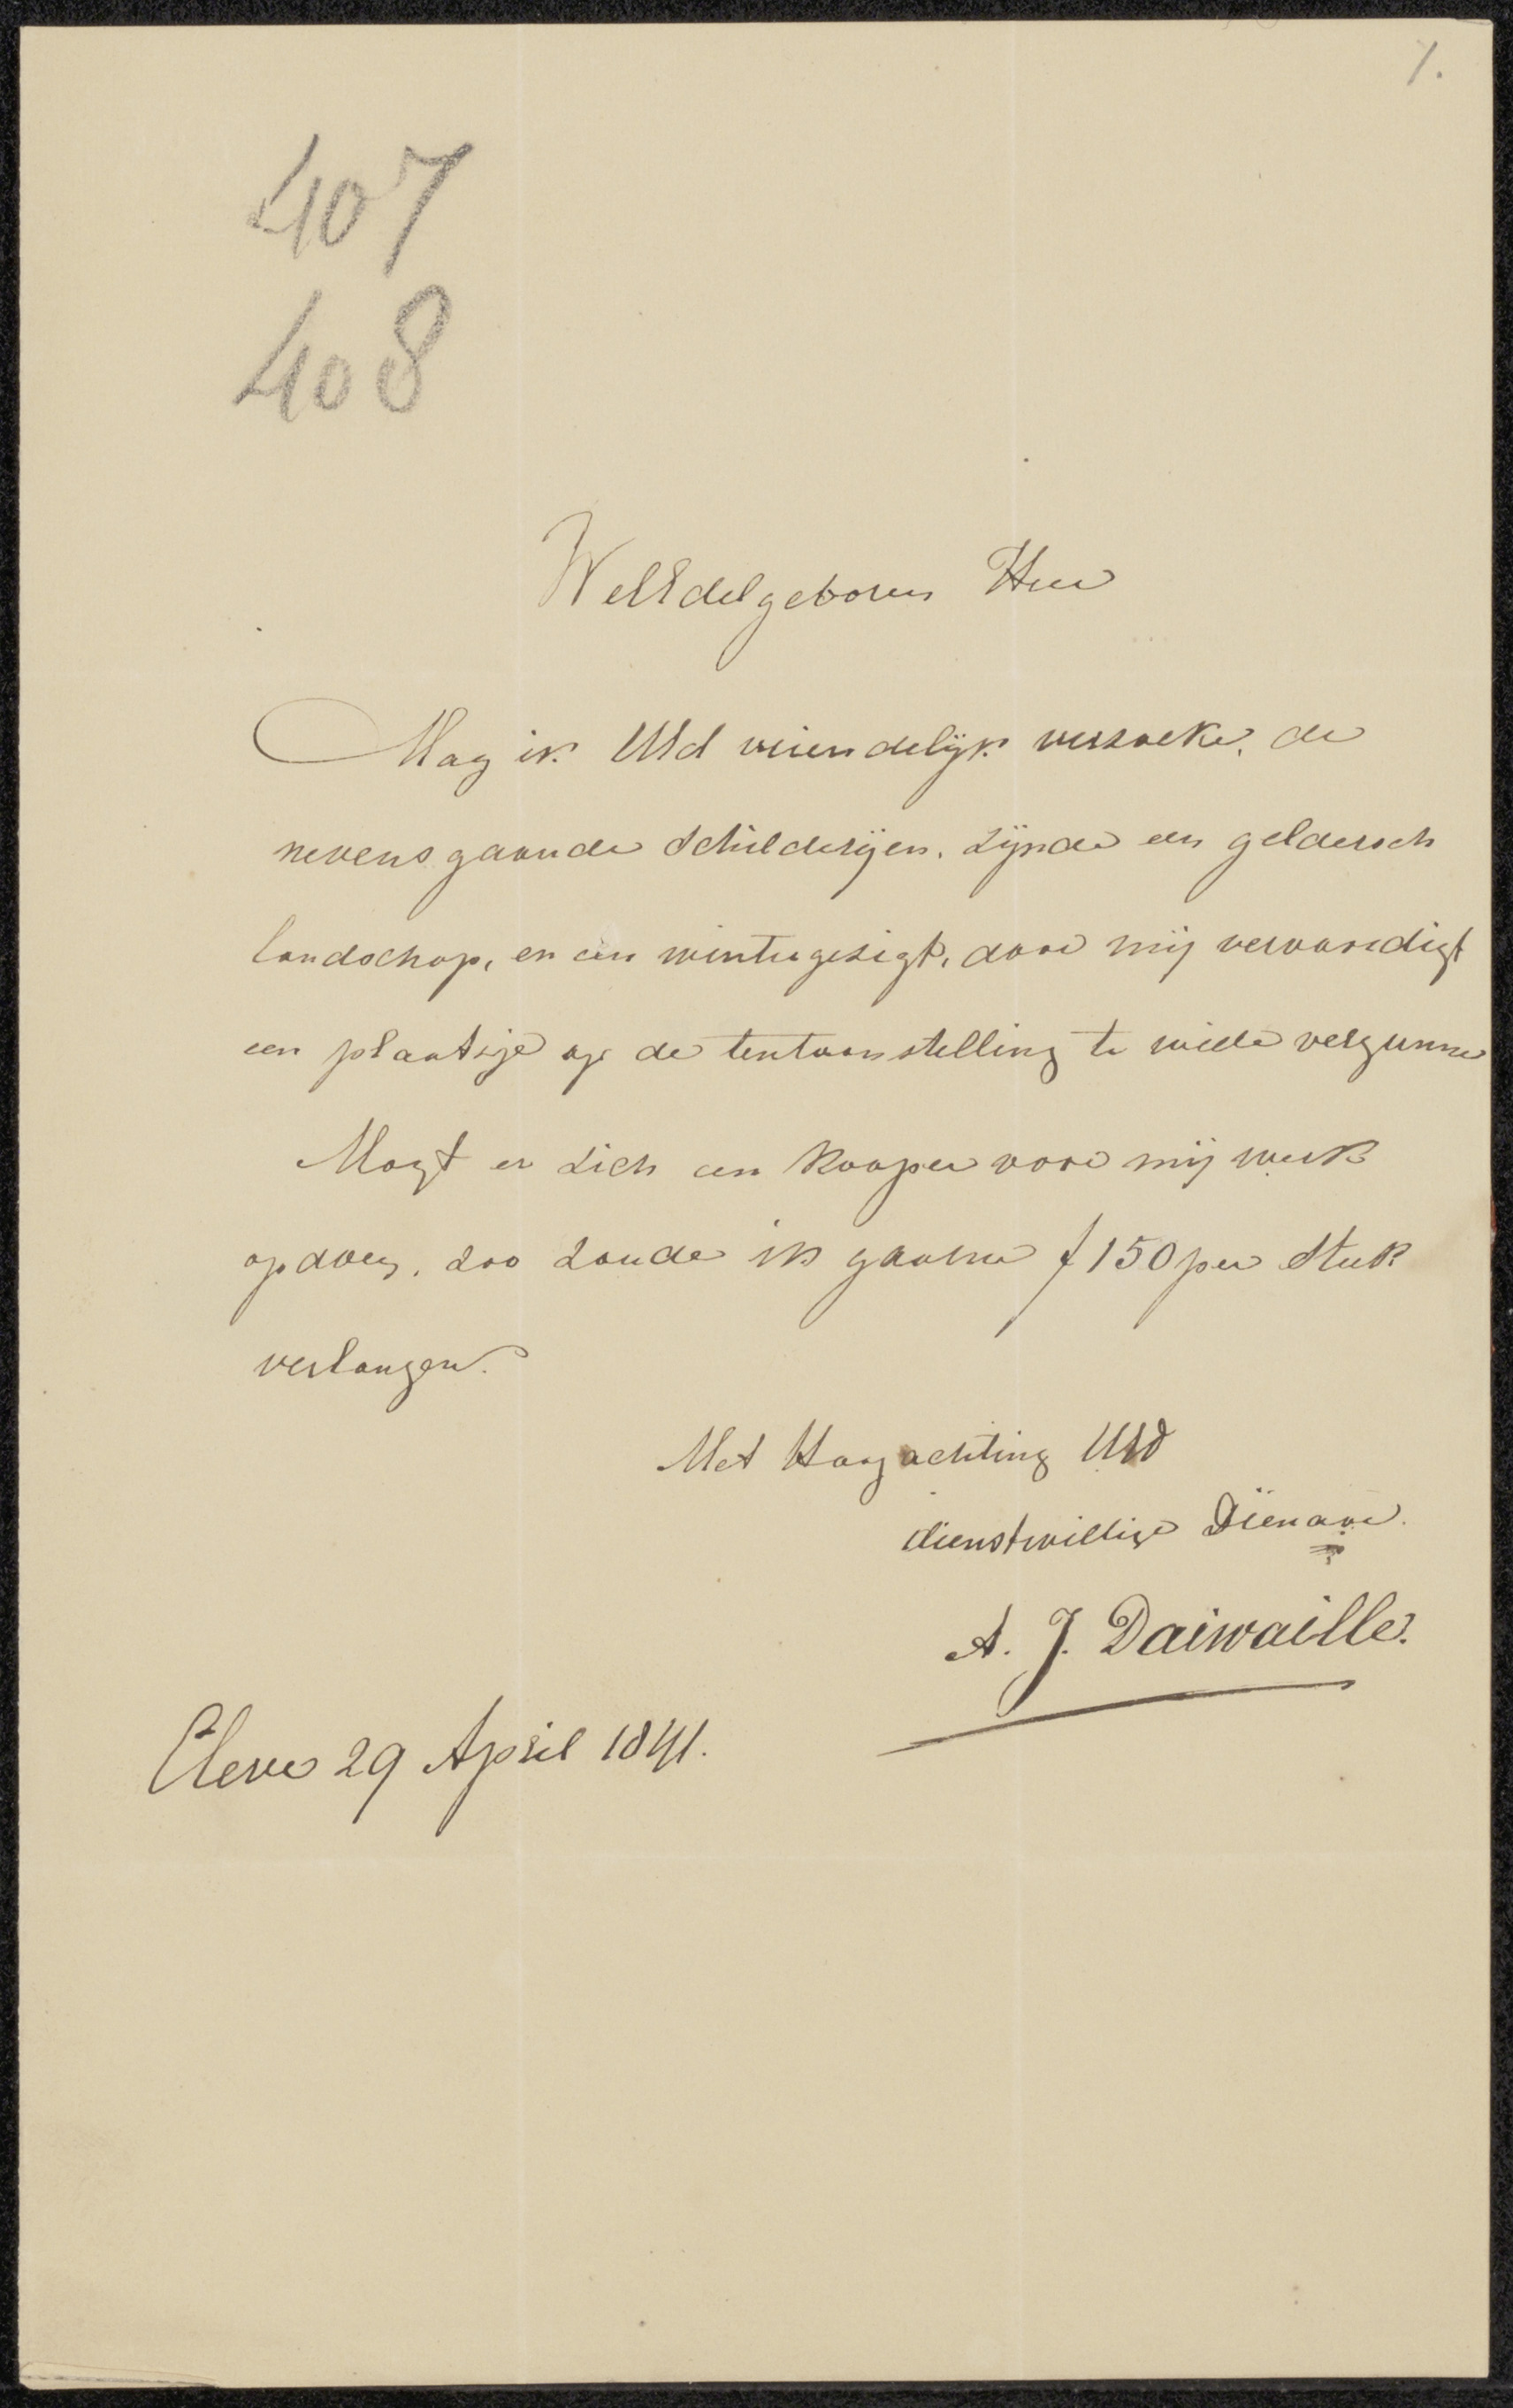 7.
407
408
WelEdelgeboren Heer
Mag ik UEd vriendelijk verzoeken, de
nevensgaande Schilderijen, zijnde een geldersch
landschap, en een wintergezigt, door mij vervaardigt
een plaatsje op de tentoonstelling te wille vergunne
Mogt er zich een kooper voor mij werk
opdoen, zoo zoude ik gaarne f 150 per Stuk
verlangen.
Met Hoogachting UEd
dienstwillige Dienaar.
A. J. Daiwaille.
Cleve 29 April 1841.